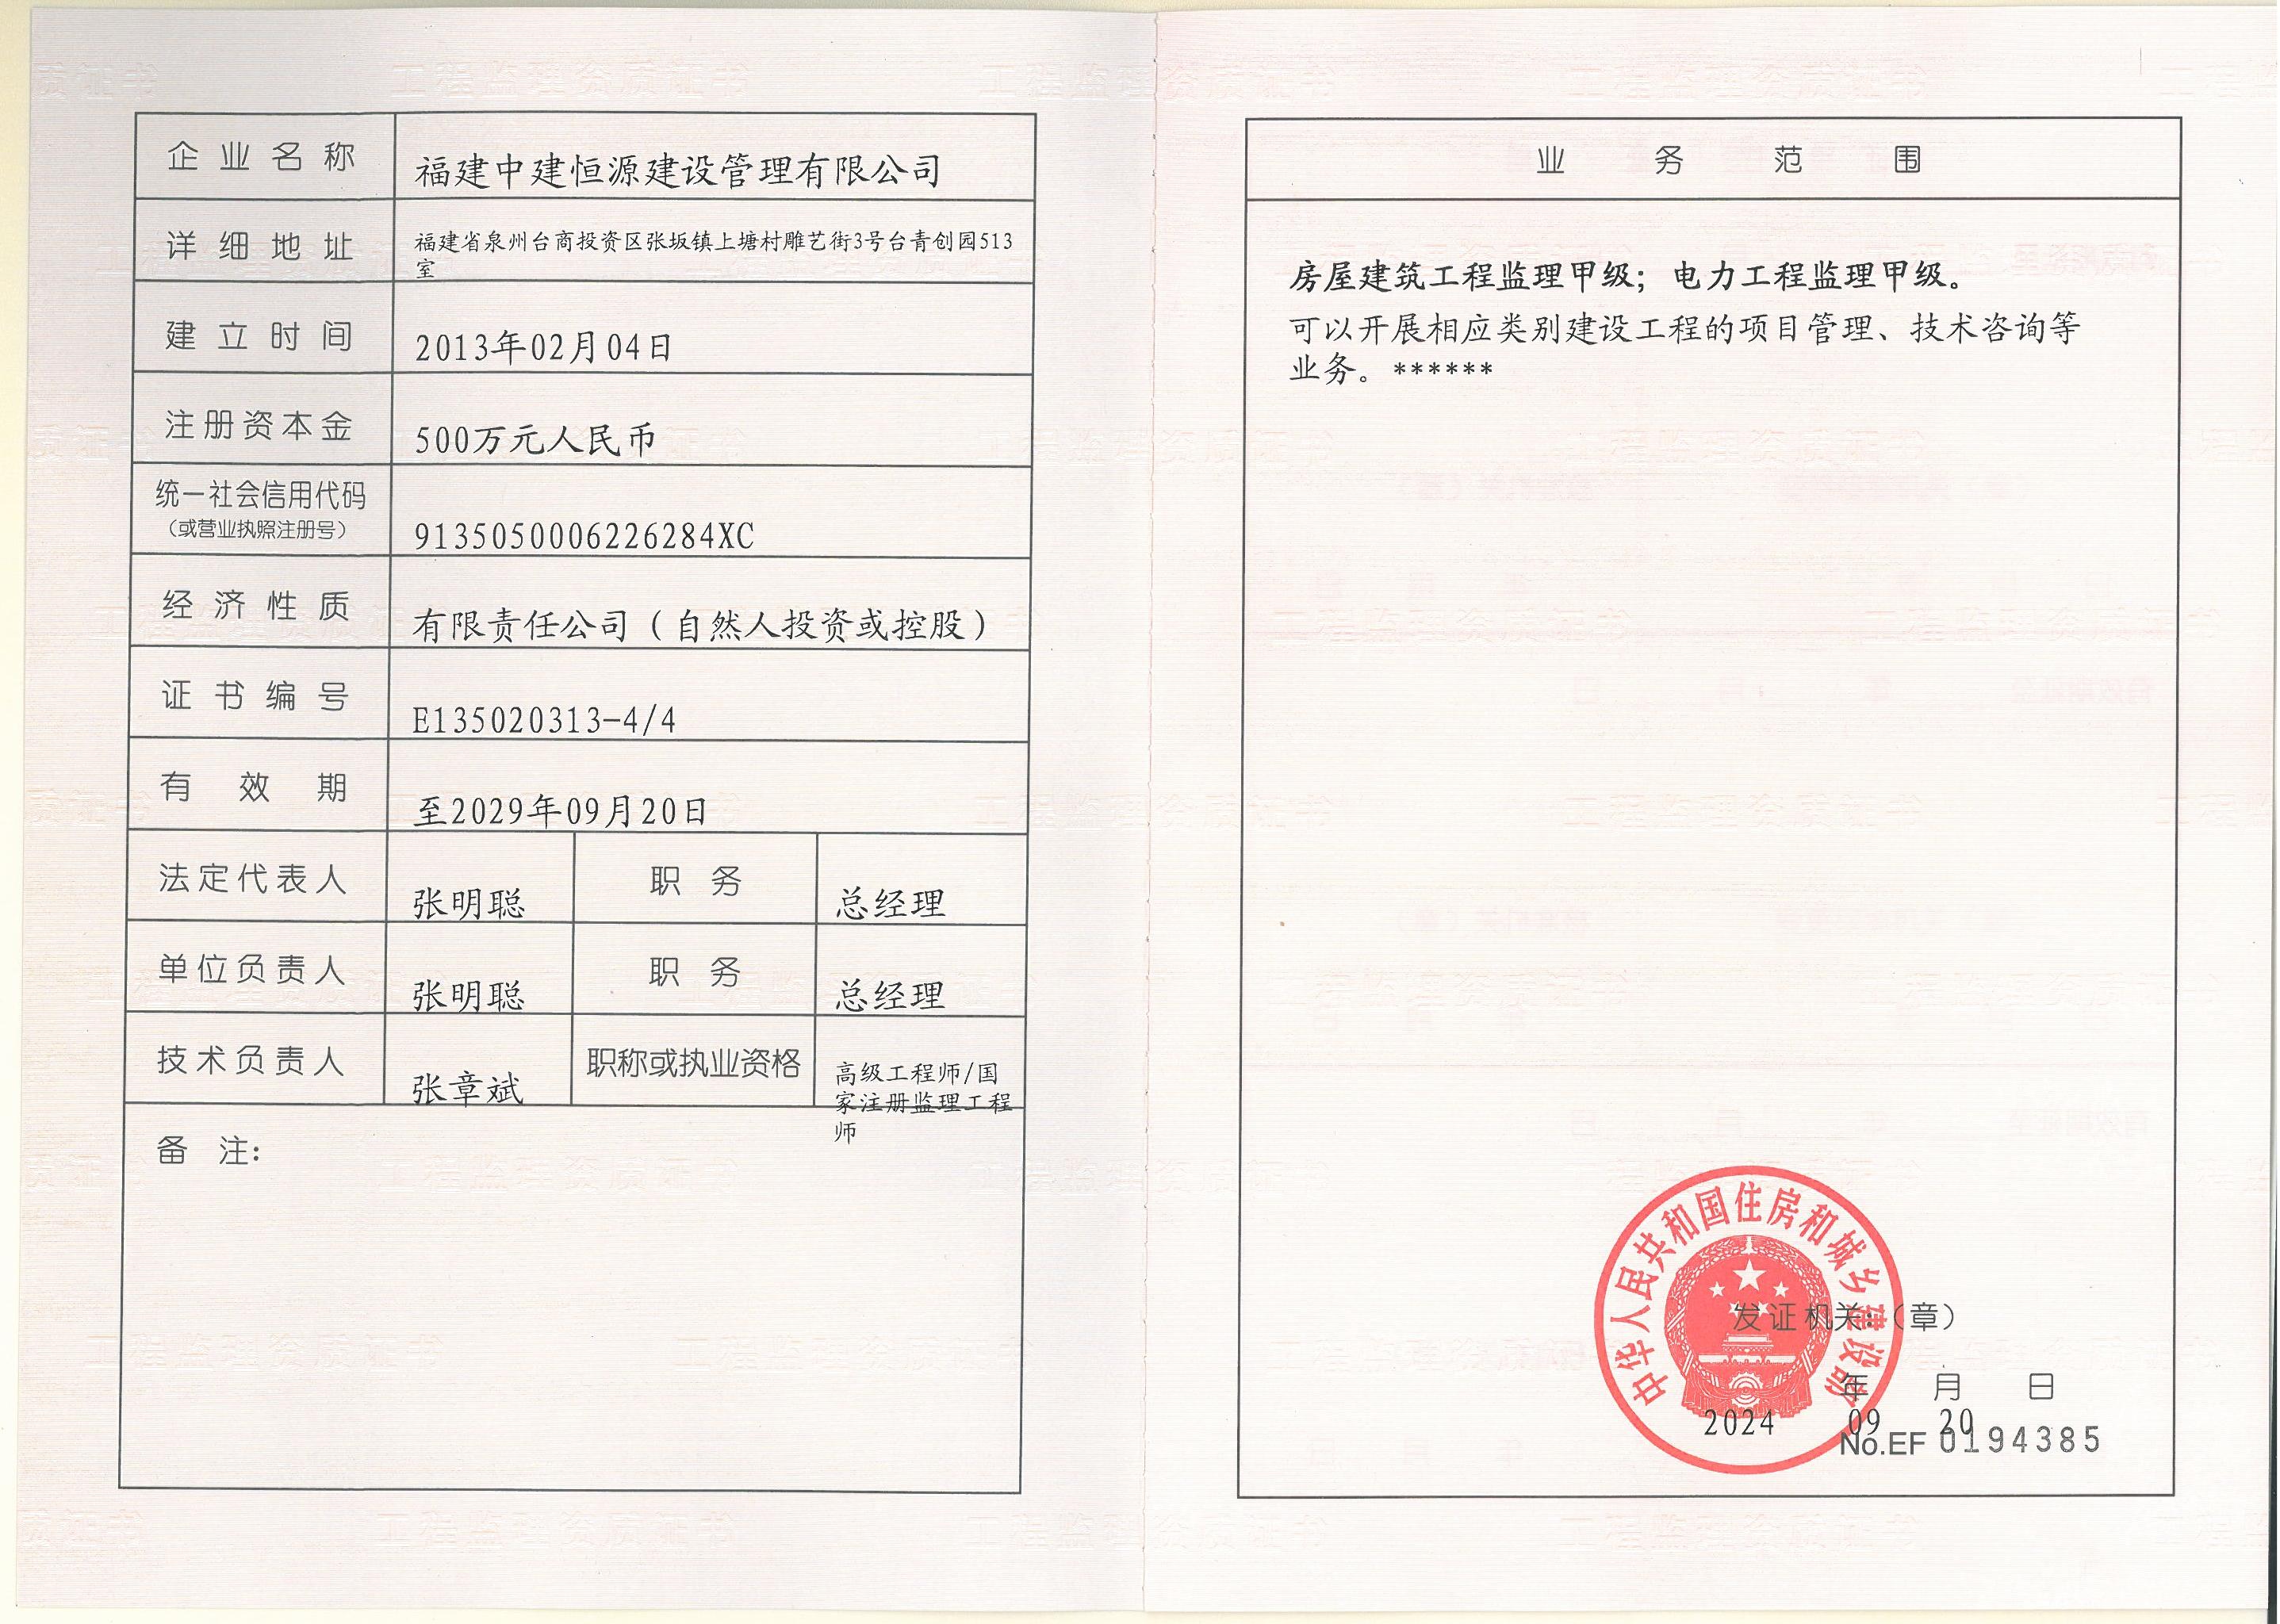 企业名称
福建中建恒源建设管理有限公司
详细地址
福建省泉州台商投资区张坂镇上塘村雕艺街3号台青创园513
室
建立时间
2013年02月04日
注册资本金
500万元人民币
统一社会信用代码
（或营业执照注册号）
9135050006226284XC
经济性质
有限责任公司（自然人投资或控股）
证书编号
E135020313-4/4
有效期
至2029年09月20日
法定代表人
张明聪
职务
总经理
单位负责人
张明聪
职务
总经理
技术负责人
张章斌
职称或执业资格
高级工程师/国
家注册监理工程
师
备注：
业务范围
房屋建筑工程监理甲级；电力工程监理甲级。
可以开展相应类别建设工程的项目管理、技术咨询等
业务。******
中华人民共和国住房和城乡建设部
发证机关：（章）
年 月 日
2024 09 20
No.EF 0194385
工程监理资质证书